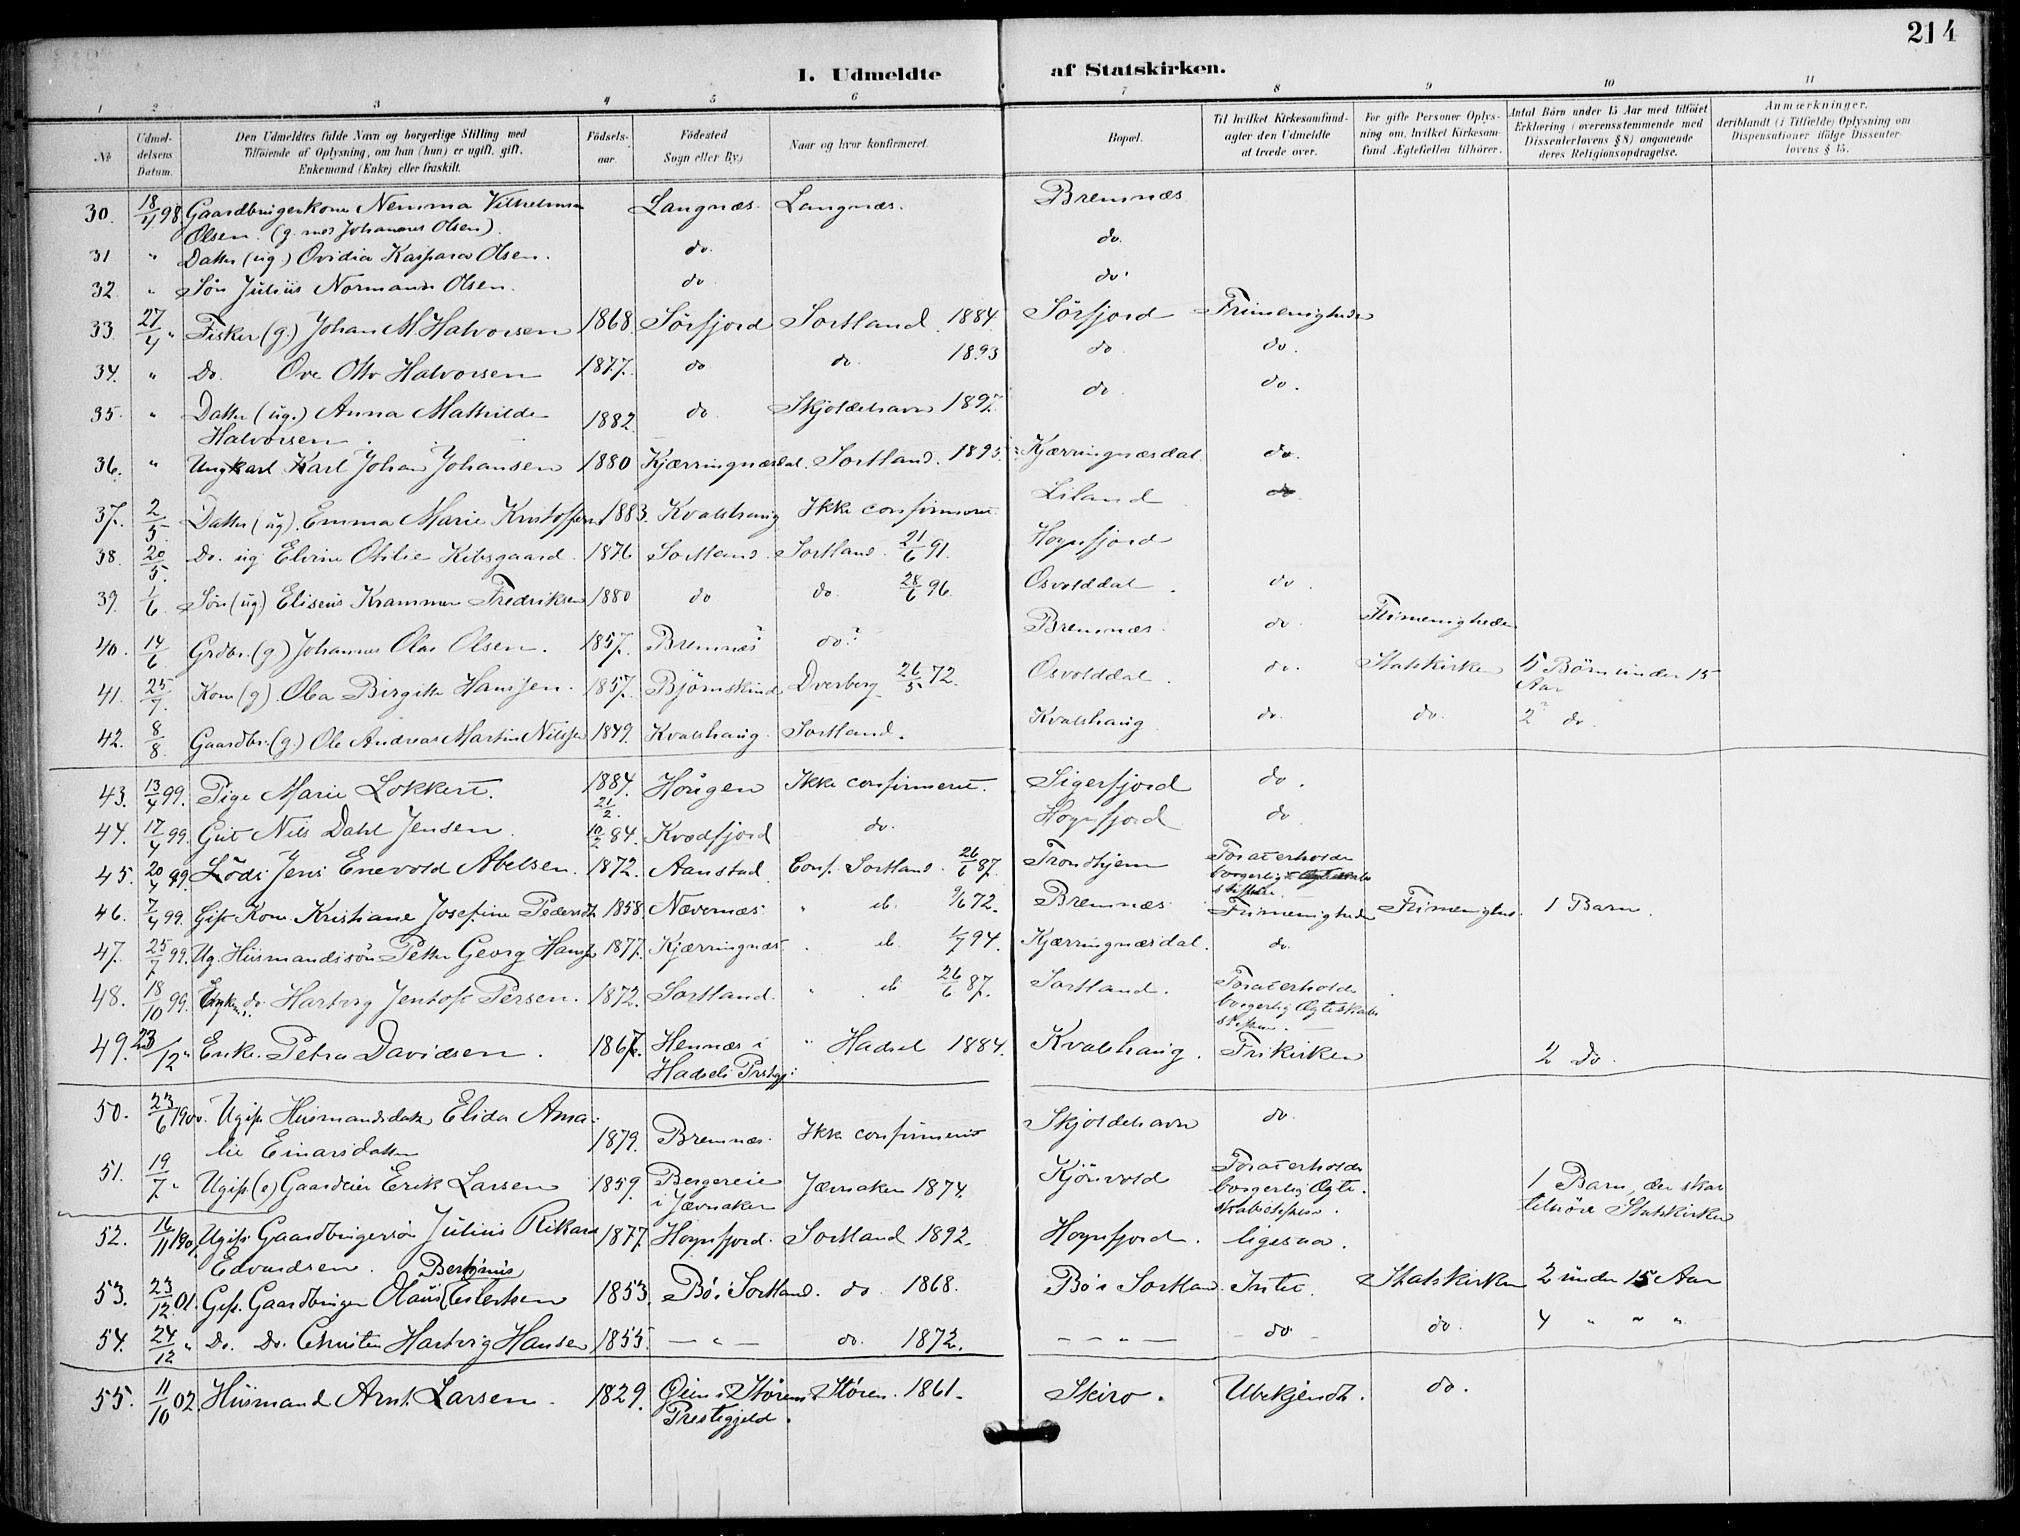 214
I. Udmeldte af Statskirken.
1 2 3 4 5 6 7 8 9 10 11
No
Udmel-
delsens
Datum.
Den Udmeldtes fulde Navn og borgerlige Stilling med
Tilföiende af Oplysning, om han (hun) er ugift, gift,
Enkemand (Enke) eller fraskilt.
Födsels-
aar.
Födested
Sogn eller By.)
Naar og hvor konfirmeret.
Bopæl.
Til hvilket Kirkesamfund
agter den Udmeldte
at træde over.
For gifte Personer Oplys-
ning om, hvilket Kirkesam-
fund Ægtefællen tilhører.
Antal Börn under 15 Aar med tilföiet
Erklæring (overensstemmende med
Dissenterlovens § 8) angaaende
deres Religionsopdragelse.
Anmærkninger.
deriblandt (i Tilfælde) Oplysning om
Dispensationer ifölge Dissenter-
lovens § 15.
30. 18/4 98 Gaardbrugerkone Nemma Vilhelmina Langnæs. Langnæs. Bremnæs
Olsen. (g. med Johannes Olsen).
31 " Datter (ug.) Ovidia Kaspara Olsen. do. do.
32 " Søn Julius Normann Olsen. do do.
33. 27/4 " Fisker (g.) Johan M. Halvorsen 1868. Sörfjord Sortland. 1884. Sörfjord Frimenigheden
34. " Do. Ove Otto Halvorsen 1877. do do. 1893 do. do.
35. " Datter (ug.) Anna Mathilde 1882. do. Skjoldehavn 1897. do do.
Halvorsen.
36. " Ungkarl Karl Johan Johansen 1880 Kjærringnæsdal. Sortland. 1895. Kjærringnæsdal. do.
37. 2/5. Datter (ug). Emma Marie Kristoffersen 1883. Kvalshaug Ikke confirmeret. Liland do
38. 20/5. Do. ug Elvine Otilie Kibsgaard. 1876 Sortland. Sortland. 21/6 91. Hognfjord
39. 1/6. Søn (ug.) Eliseus Krammer Fredriksen 1880 do do. 28/6 96. Osvolddal. do.
40. 14/6 Grdbr. (g.) Johannes Olai Olsen. 1857. Bremnæs? do? Bremnæs. do Frimenigheden
41. 25/7. Kone (g). Olea Birgitte Hanssen. 1857. Björnskind Dverberg 26/5 72. Osvolddal. do. Statskirken 5 Børn under 15
Aar
42. 8/8 Gaardbr. (g.) Ole Andreas Martin Nilssen 1849. Kvalshaug. Sortland. Kvalshaug do. do. 2? do.
43. 13/4 99. Pige Marie Lokkert. 1884. 21/2. Hougen Ikke confirmeret. Sigerfjord do.
44. 17/4 99. Gut Nils Dahl Jensen. 10/2 84. Kvædfjord do. Hognfjord do
45. 20/4 99. Lods Jens Enevold Abelsen. 1872. Aanstad Conf. Sortland. 26/6 87. Trondhjem For at erholde
borgerligt Ægteskabs
stiftelse.
46. 7/4 99. Gift Kone Kristiane Josefine Pedersdtr 1858. Nævernæs. " ib. 9/6 72. Bremnæs Frimenigheden Frimenighed. 1 Barn.
47. 25/7 99. Ug. Husmandssön Petter Georg Hansen 1877. Kjærringnæs " ib. 1/7 94. Kjærringnæsdal. do.
48. 18/10 99. do. Hartvig Jentoft Persen. 1872. Sortland. " ib 26/6 87. Sortland. For at erholde
borgerlig Ægteskabs
stiftelse.
49. 23/12 " Enke. Petra Davidsen. 1867. Hennæs i " Hadsel 1884. Kvalshaug. Frikirken 2 do.
Hadsels Prstgj:
50. 23/6 1900. Ugift Husmandsdatr Elida Ama- 1879. Bremnæs. Ikke confirmeret Skjoldehavn do.
lie Einarsdatter
51. 19/7 " Ugift (e) Gaardeier Erik Larsen 1859. Bergereie Jævnaker 1874. Kjönvold For at erholde 1 Barn, der skal
i Jævnaker borgerlig Ægte- tilhøre Statskirken
skabsstiftelse.
52. 16/11 1901 Ugift Gaardbrugersön Julius Rikard 1877. Hognfjord. Sortland 1892. Hognfjord. ligesaa.
Edvardsen.
Bertinius
53. 23/12. 01. Gift. Gaardbruger Olaus Eilertsen 1853. Bö i Sortland. do. 1868. Bö i Sortland. Intet. Statskirken 2 under 15 Aar
54. 24/12 " Do. Do. Christen Hartvig Hansen 1855. — " — do. 1872. — — " — - do - do. 4 " " "
55. 11/10 02. Husmand Arnt Larsen. 1829. Öien i Störens Stören. 1861. Skiro. Ubekjendt. do.
Prestegjeld.